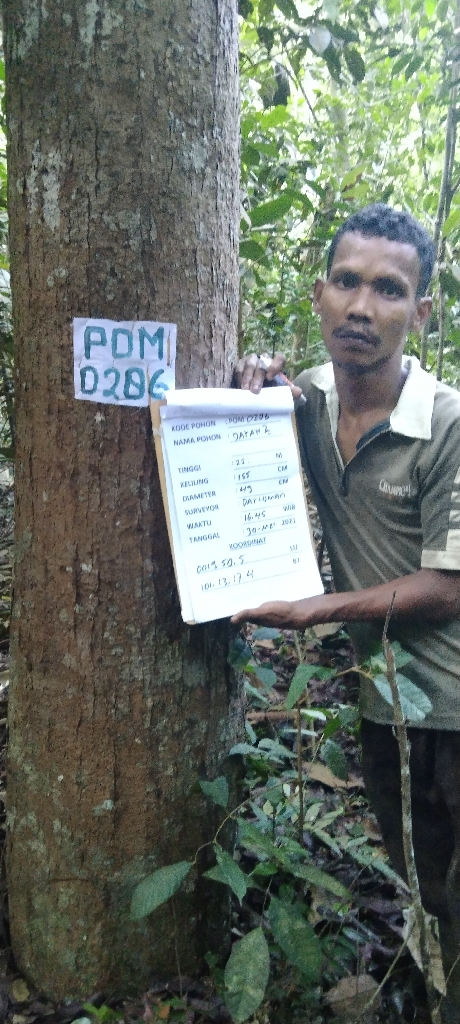 PDM
0206
KODE POHON : PDM 0206
NAMA POHON :
TINGGI : 22 M
KELILING : 155 CM
DIAMETER : 49 CM
SURVEYOR : DARISMAN
WAKTU : 16.45 WIB
TANGGAL : 30-MEI 2021
KOORDINAT
0019.50.5 LU
101.13.17.4 BT
CHAMPION